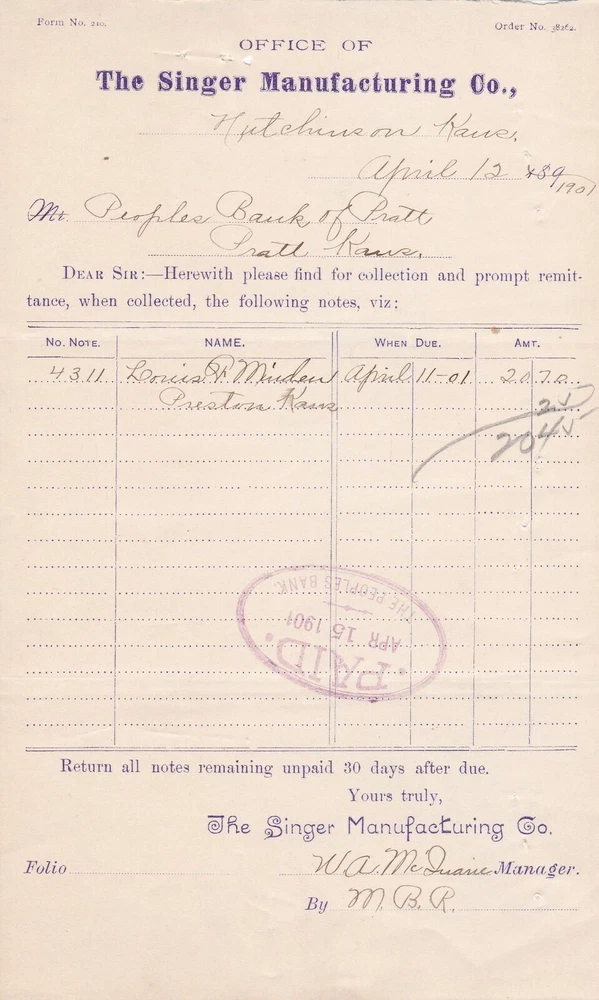 Form No. 210.
Order No. 38262.
OFFICE OF
The Singer Manufacturing Co.,
Hutchinson Kans.
April 12 189
1901
Mr. Peoples Bank of Pratt
Pratt Kans.
DEAR SIR:—Herewith please find for collection and prompt remit-
tance, when collected, the following notes, viz:
No. NOTE. NAME. WHEN DUE. AMT.
4311 Louis F Minden April 11-01 20 70
Preston Kans
25
2045
THE PEOPLES BANK.
APR 15 1901
PAID.
Return all notes remaining unpaid 30 days after due.
Yours truly,
The Singer Manufacturing Co.
Folio W. A. McDuane Manager.
By M. B. R.